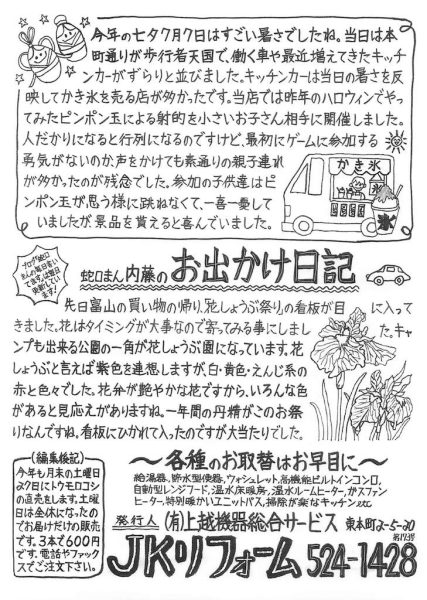 今年の七夕7月7日はすごい暑さでしたね。当日は本
町通りが歩行者天国で、働く車や最近増えてきたキッチ
ンカーがずらりと並びました。キッチンカーは当日の暑さを反
映してかき氷を売る店が多かったです。当店では昨年のハロウィンでやっ
てみたピンポン玉による射的を小さいお子さん相手に開催しました。
人だかりになると行列になるのですけど、最初にゲームに参加する
勇気がないのか声をかけても素通りの親子連れ
が多かったのが残念でした。参加の子供達はピ
ンポン玉が思う様に跳ねなくて、一喜一憂して
いましたが景品を貰えると喜んでいました。
かき氷
氷
氷
ブログ蛇口
まんの毎日言い
てきは曜日
更新してい
ます!
蛇口まん内藤のお出かけ日記
先日富山の買い物の帰り、「花しょうぶ祭り」の看板が目に入って
きました。花はタイミングが大事なので寄ってみる事にしました。キャ
ンプも出来る公園の一角が花しょうぶ園になっています。花
しょうぶと言えば紫色を連想しますが、白・黄色・えんじ系の
赤と色々でした。花弁が艶やかな花ですから、いろんな色
があると見応えがありますね。一年間の丹精がこのお祭
りなんですね。看板にひかれて入ったのですが大当たりでした。
(編集後記)
今年も月末の土曜日
27日にトウモロコシ
の直売をします。土曜
日は全休になったの
でお届けだけの販売
です。3本で600円
です。電話やファック
スでご注文下さい。
〜各種のお取替はお早目に〜
給湯器、貯水型便器、ウォシュレット、高機能ビルトインコンロ、
自動型レンジフード、温水床暖房、温水ルームヒーター、ガスファン
ヒーター、特別暖かいユニットバス、掃除が楽なキッチンetc
発行人 (有)上越機器総合サービス 東本町2-5-20
JKリフォーム 524-1428